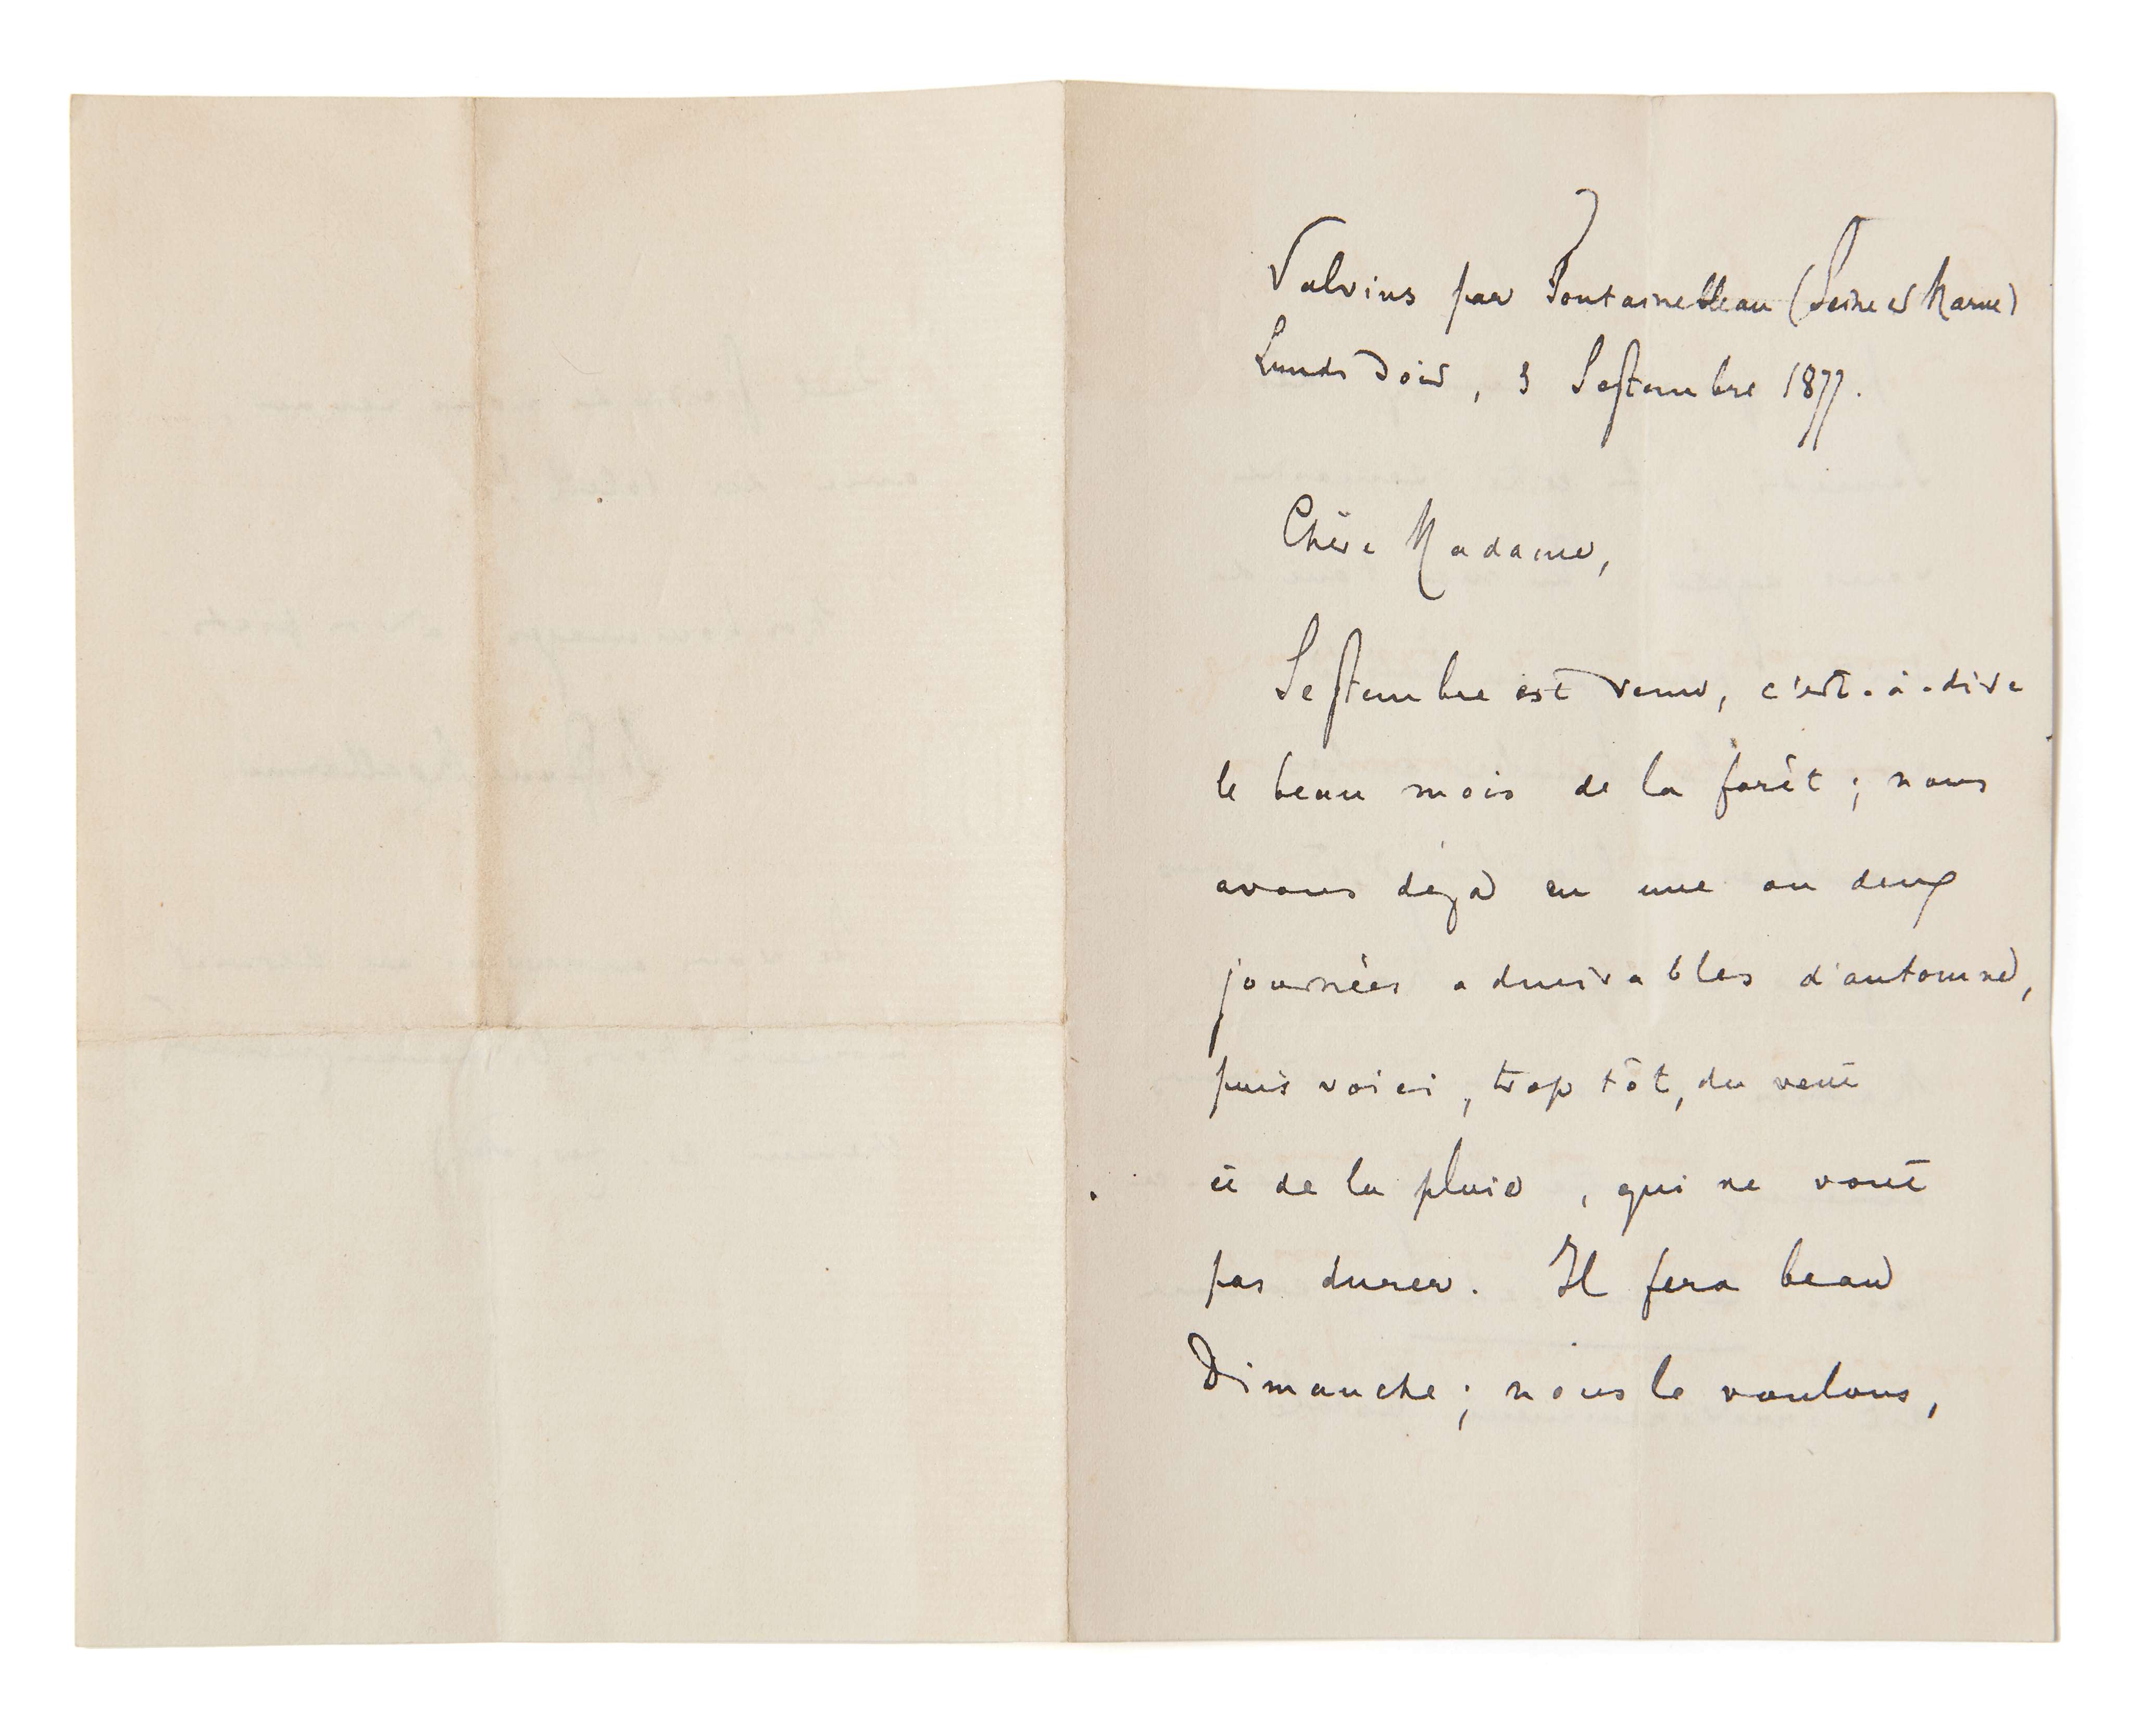 Valvins par Fontainebleau (Seine et Marne)
Lundi Soir, 3 Septembre 1877.
Chère Madame,
Septembre est venu, c'est-à-dire
le beau mois de la forêt ; nous
avons déjà eu une ou deux
journées admirables d'automne,
puis voici, trop tôt, du vent
et de la pluie, qui ne vont
pas durer. Il fera beau
Dimanche ; nous le voulons,